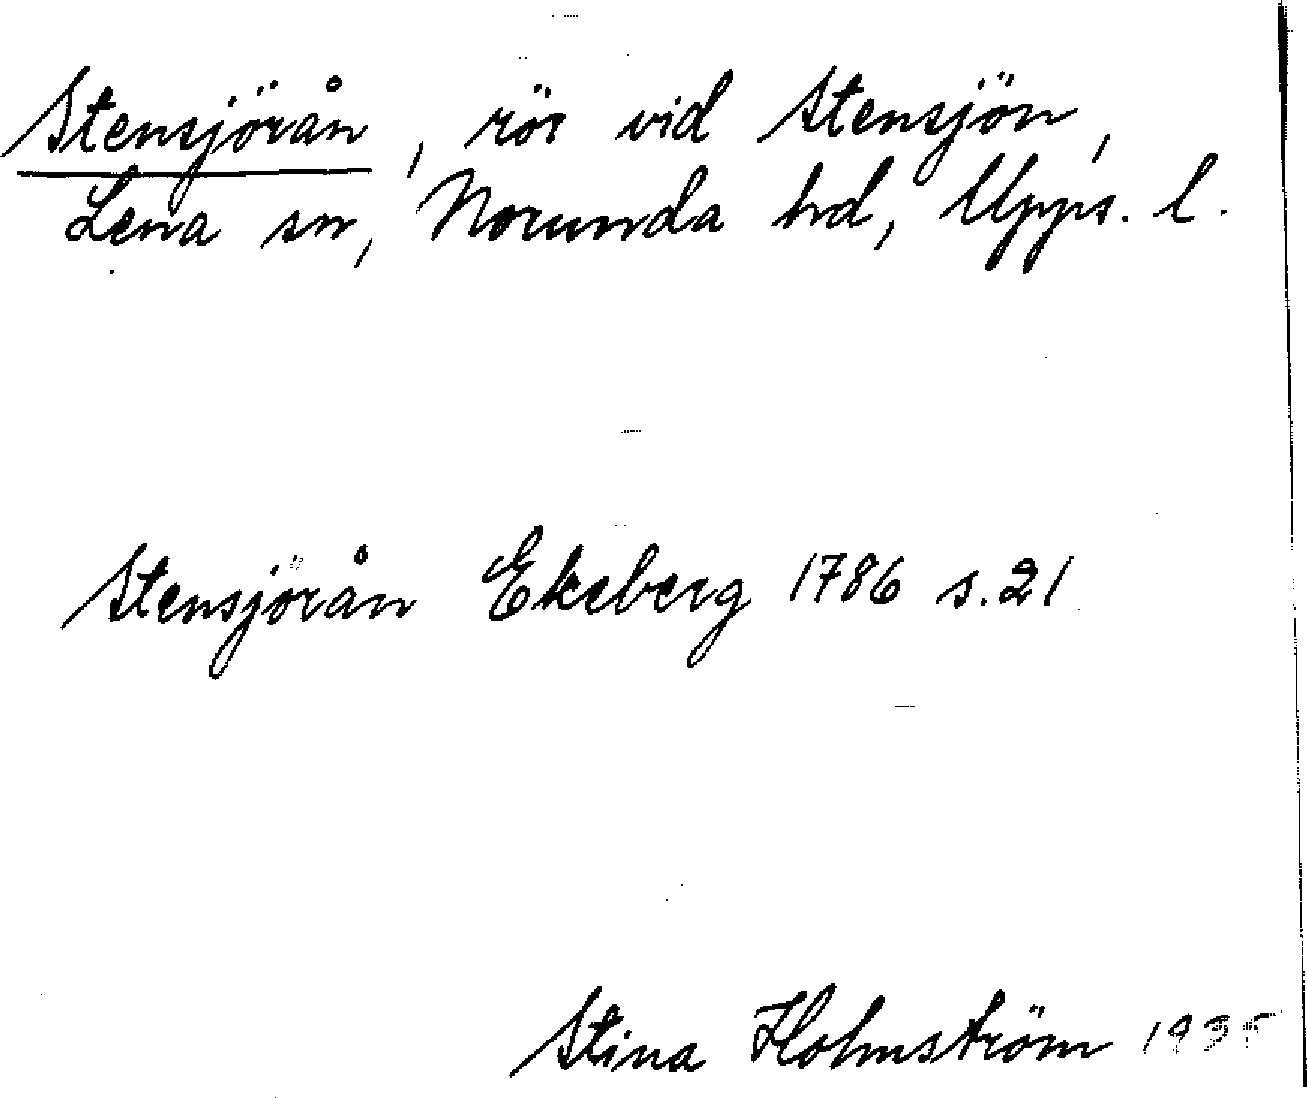 Stensjörån, rör vid Stensjön,
Lena sn, Norunda hd, Upps. l.
Stensjörån Ekeberg 1786 s. 21
Stina Holmström 1935